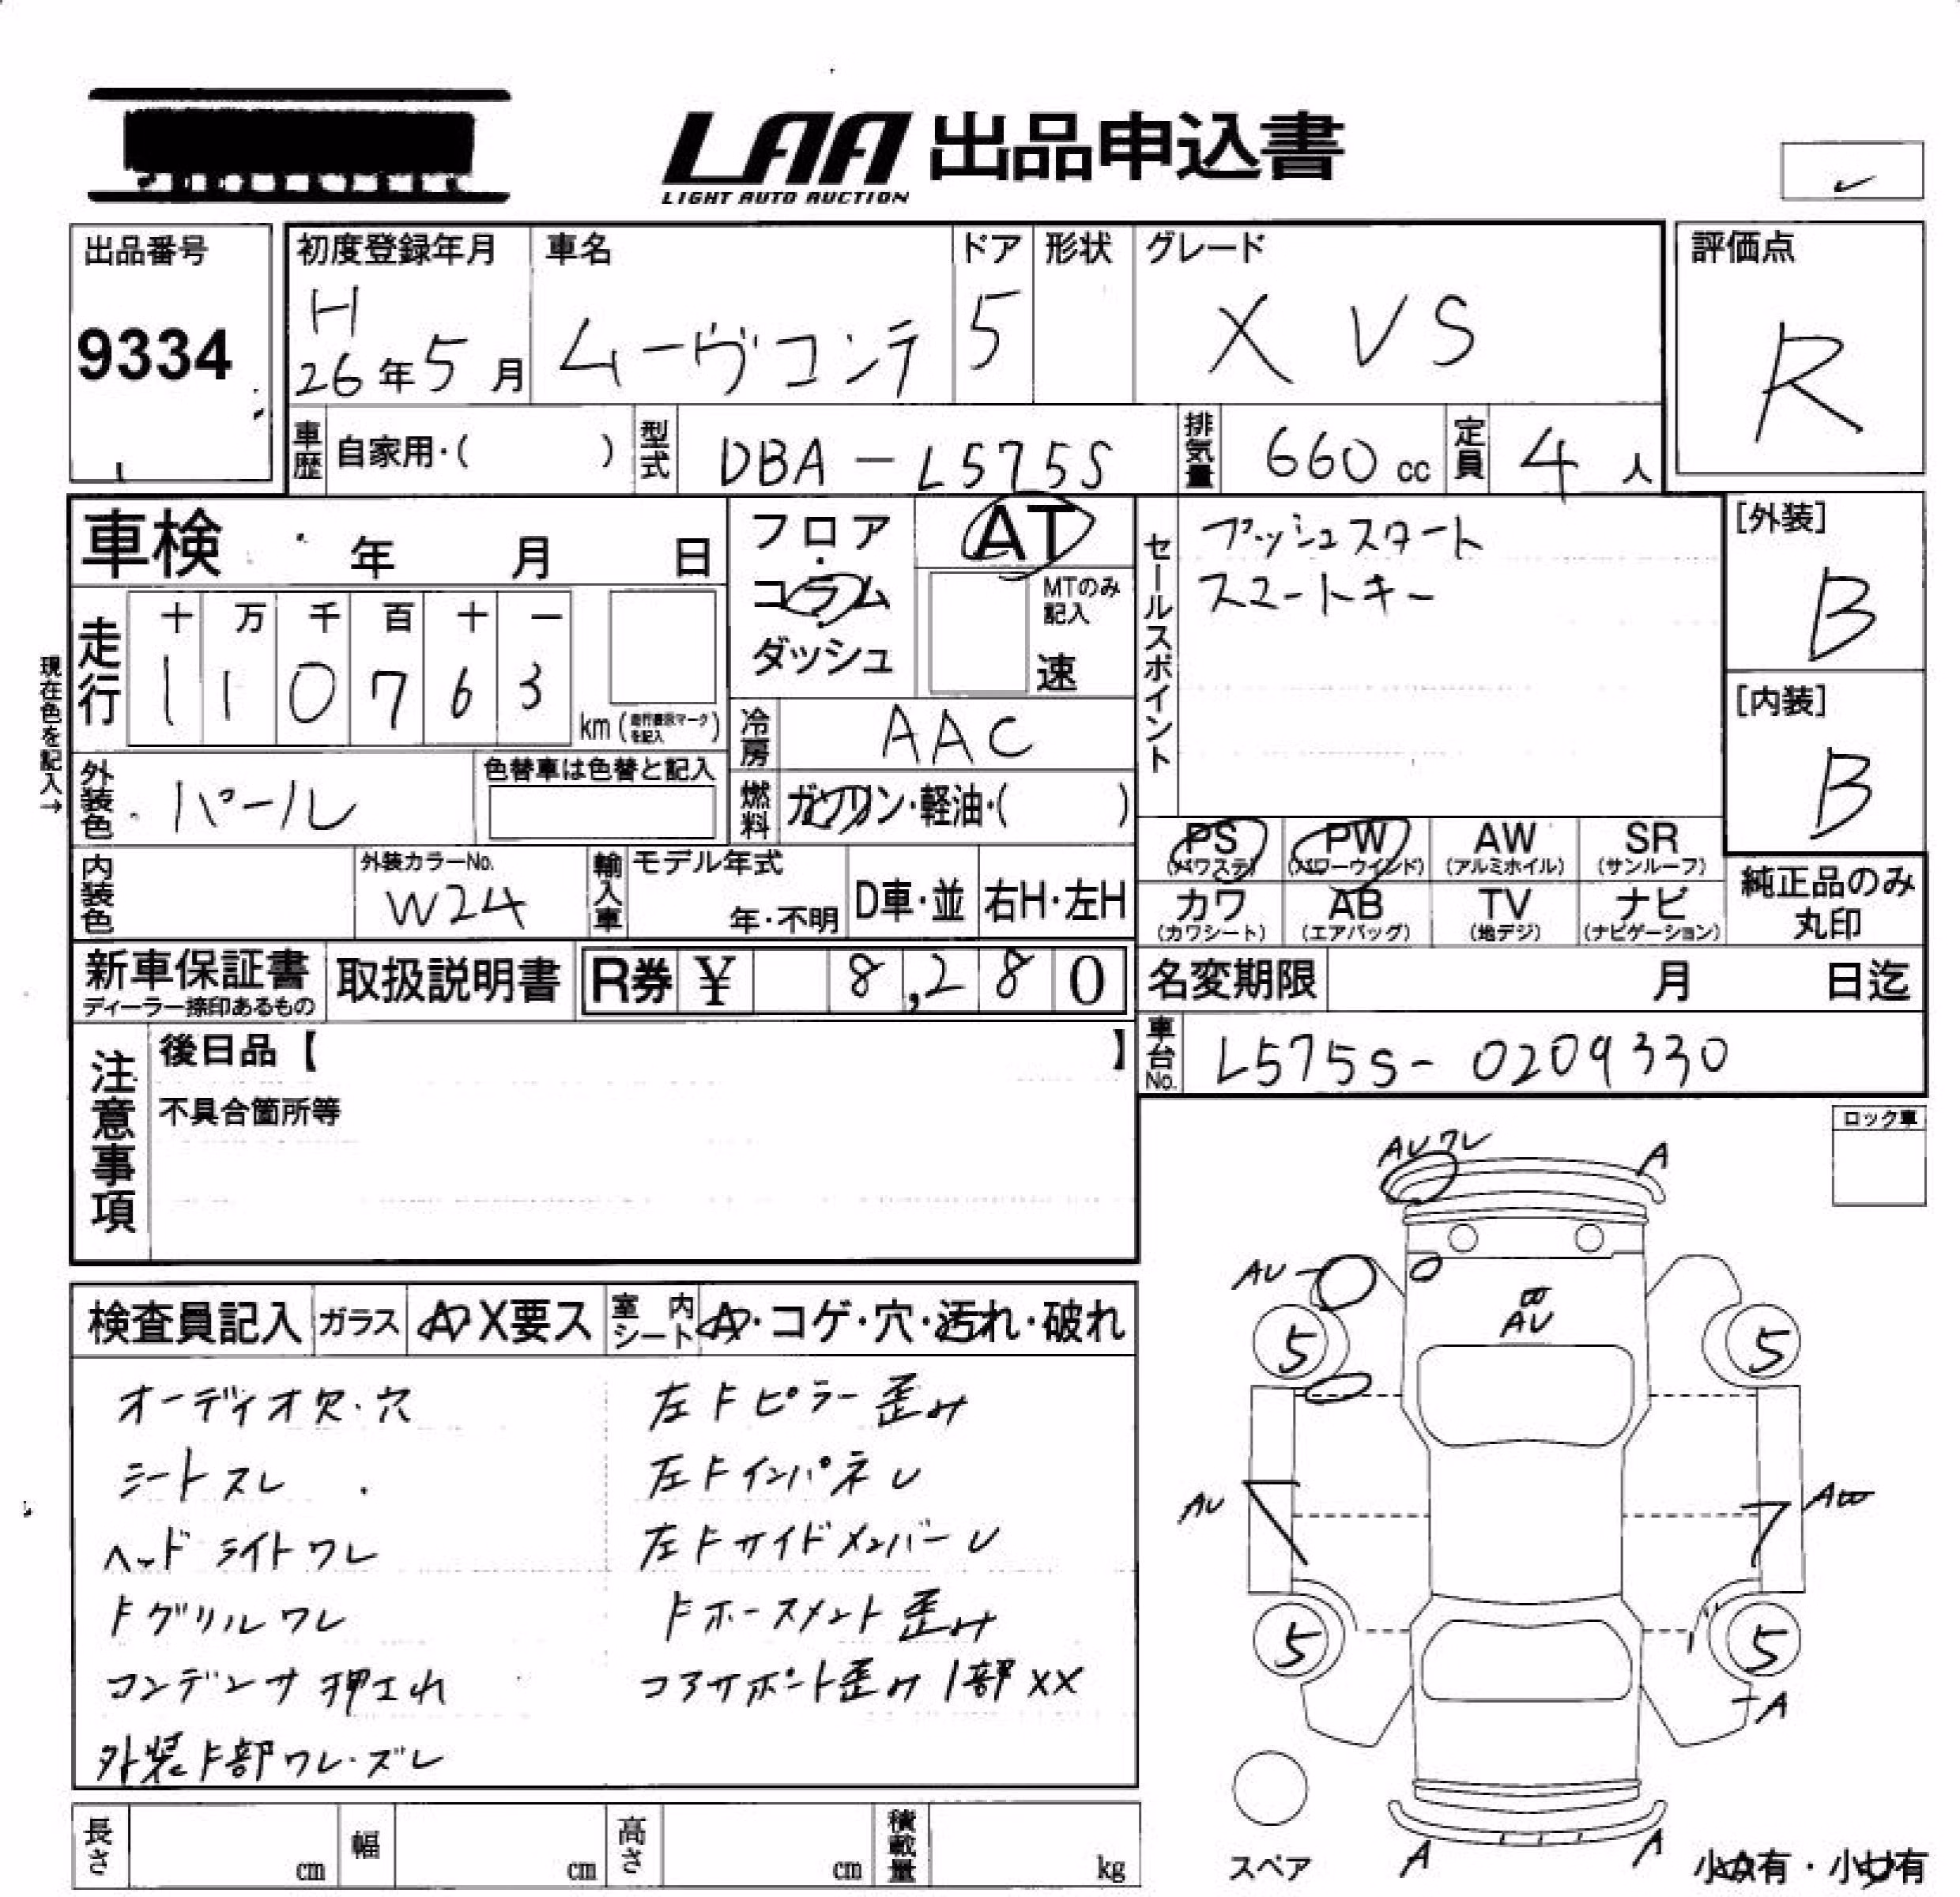 LAA 出品申込書
LIGHT AUTO AUCTION
出品番号
9334
初度登録年月
H
26年5月
車名
ムーヴコンテ
ドア
5
形状
グレード
X VS
評価点
R
車歴 自家用・( )
型式 DBA-L575S
排気量 660 cc
定員 4 人
車検 年 月 日
フロア・コラム・ダッシュ
AT
MTのみ記入
速
セールスポイント
プッシュスタート
スマートキー
[外装]
B
[内装]
B
現在色を記入→
走行
十 万 千 百 十 一
1 1 0 7 6 3
km (走行要示マークを記入)
冷房 AAC
外装色 パール
色替車は色替と記入
燃料 ガソリン・軽油・( )
PS (パワステ) PW (パワーウインド) AW (アルミホイル) SR (サンルーフ)
カワ (カワシート) AB (エアバッグ) TV (地デジ) ナビ (ナビゲーション)
純正品のみ丸印
内装色
外装カラーNo.
W24
輸入車
モデル年式
年・不明
D車・並
右H・左H
新車保証書
ディーラー捺印あるもの
取扱説明書
R券 ¥ 8,280
名変期限 月 日迄
車台No. L575S-0209330
注意事項
後日品【 】
不具合箇所等
ロック車
検査員記入 ガラス A X要ス 室内シート A・コゲ・穴・汚れ・破れ
オーディオ欠・穴
シートスレ
ヘッドライトワレ
Fグリルワレ
コンデンサ押され
外装F部ワレ・ズレ
左Fピラー歪み
左FインパネU
左FサイドメンバーU
Fホースメント歪み
コアサポート歪み1部XX
AUワレ
A
AU
AU
5
5
AU
A
5
5
A
A
A
スペア
小 有・小 有
長さ cm
幅 cm
高さ cm
積載量 kg